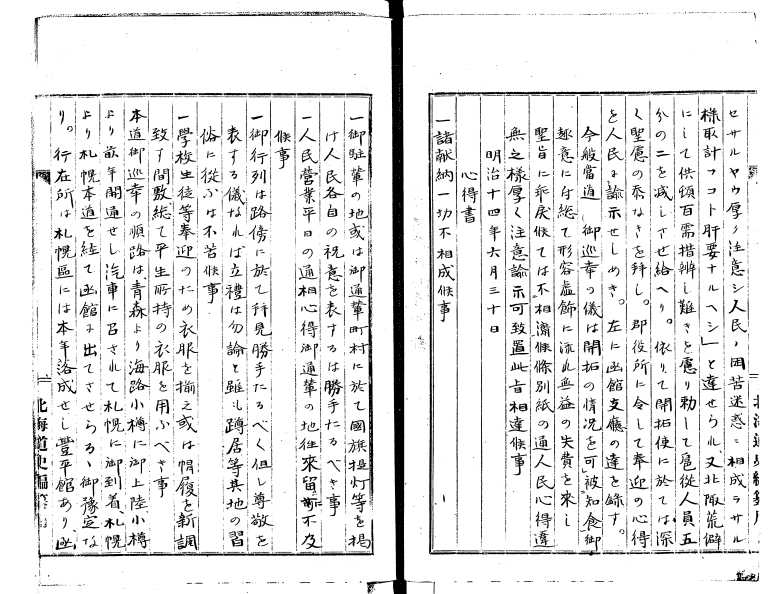 セサルヤウ厚ク注意シ人民ノ困苦迷惑ニ相成ラサル
様取計フコト肝要ナルヘシ」と達せられ、又北陬荒僻
にして供頓百需措辨し難きを慮り勅して扈從人員五
分の二を減しさせ給へり。依りて開拓使に於ては深
く聖慮の忝なきを拜し。郡役所に令して奉迎の心得
を人民に諭示せしめき。左に函館支廳の達を録す。
今般當道ヘ御巡幸の儀は開拓の情況を可被知食御
趣意に付總て形容虚飾に流れ無益の失費を來し
聖旨に乖戻候ては不相濟候條別紙の通人民心得違
無之樣厚く注意諭示可致置此旨相達候事
明治十四年六月三十日
心得書
一諸献納一切不相成候事
一御駐輦の地或は御通輦町村に於て國旗提灯等を掲
け人民各自の祝意を表するは勝手たるべき事
一人民営業平日の通相心得御通輦の地往來留に不及
候事
一御行列は路傍に於て拜見勝手たるべく但し尊敬を
表する儀なれば立禮は勿論と雖も蹲居等其地の習
俗に從ふは不苦候事
一學校生徒等奉迎のため衣服を揃え或は帽履を新調
致す間敷總て平生所持の衣服を用ふべき事
本道御巡幸の順路は青森より海路小樽に御上陸小樽
より前年開通せし汽車に召されて札幌に御到着、札幌
より札幌本道を経て函館に出てさせらるゝ御豫定な
り。行在所は札幌區には本年落成せし豐平館あり、函
北海道史編